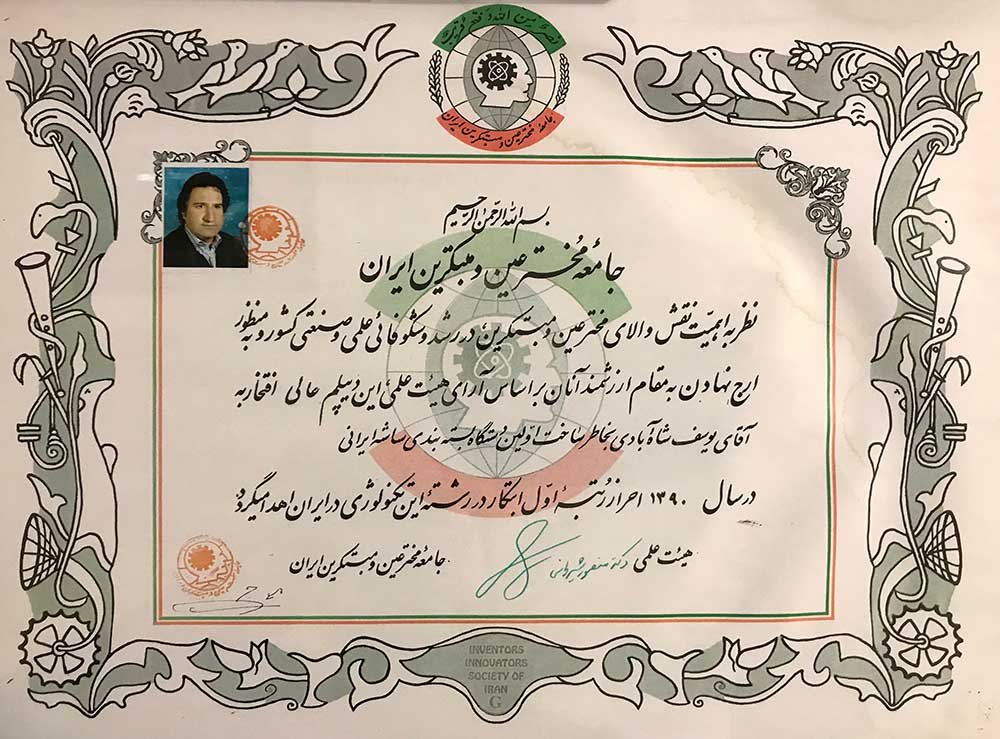 نصر من الله و فتح قریب
جامعه مخترعین و مبتکرین ایران
بسم الله الرحمن الرحیم
جامعهٔ مخترعین و مبتکرین ایران
نظر به اهمیّت نقش والای مخترعین و مبتکرین در رشد و شکوفائی علمی و صنعتی کشور و به منظور
ارج نهادن به مقام ارزشمند آنان بر اساس آرای هیئت علمی این دیپلم عالی افتخار به
آقای یوسف شاه آبادی بخاطر ساخت اولین دستگاه بسته بندی ساشه ایرانی
در سال ۱۳۹۰ احراز رتبهٔ اوّل ابتکار در رشتهٔ این تکنولوژی در ایران اهدا میگردد
هیئت علمی دکتر منصور شیروانی
جامعهٔ مخترعین و مبتکرین ایران
INVENTORS
INNOVATORS
SOCIETY OF
IRAN
G